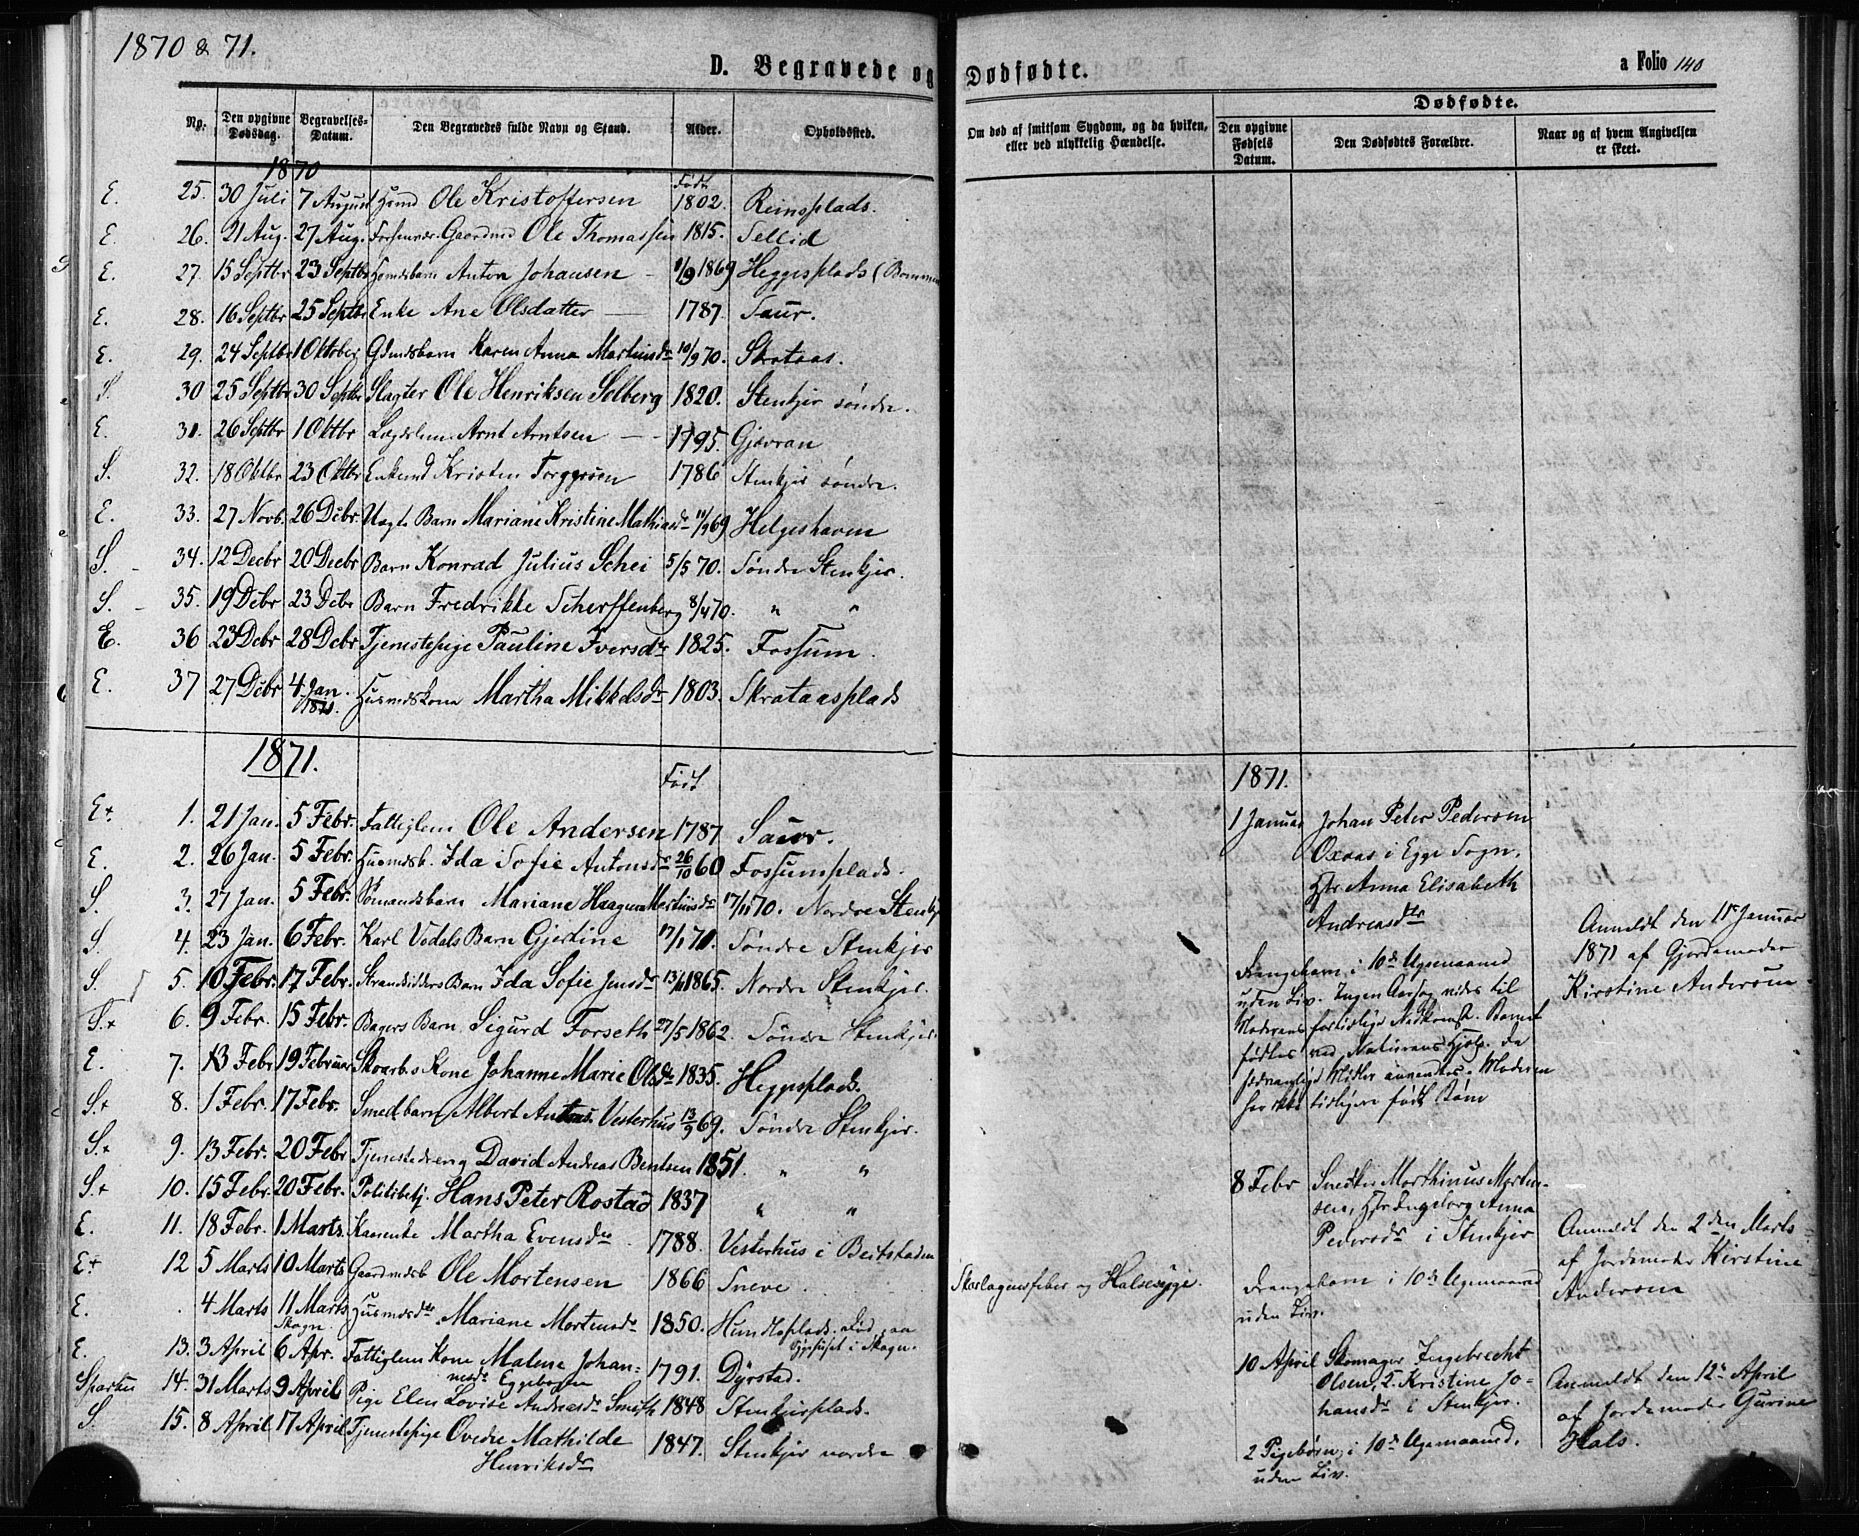 1870 & 71.
D. Begravede og Dødfødte.
a Folio 140
No.
Den opgivne Dødsdag.
Begravelses-Datum.
Den Begravedes fulde Navn og Stand.
Alder.
Opholdssted.
Om død af smitsom Sygdom, og da hviken, eller ved ulykkelig Hændelse.
Dødfødte.
Den opgivne Fødsels Datum.
Den Dødfødtes Forældre.
Naar og af hvem Angivelsen er skeet.
1870
Født
E. 25. 30 Juli 7 August Hsmd Ole Kristoffersen 1802. Reinsplads.
E. 26. 21 Aug. 27 Aug. Gaardmd Ole Thomassen 1815. Sellid
E. 27. 15 Septbr 23 Septbr Hsmdsbarn Anton Johansen 1869 Heggesplads
E. 28. 16 Septbr 25 Septbr Enke Ane Olsdatter 1787. Saur.
E. 29. 24 Septbr 1 Oktober Gdmdsbarn Karen Anna Martinsdr 10/9 70. Skrataas.
S. 30 25 Septbr 30 Septbr Slagter Ole Henriksen Selberg 1820. Stenkjer søndre.
E. 31. 26 Septbr 1 Oktbr Lægdslem Arnt Arntsen 1795. Gjævran
S. 32. 18 Oktbr 23 Oktbr Enkemd Kristen Torgersen 1786 Stenkjer søndre.
E. 33. 27 Novb. 26 Dcbr. Uægte Barn Mariane Kristine Mathiasdr 11/9 69 Helgeshaven
S. 34. 12 Decbr 20 Decbr Barn Konrad Julius Schei 5/5 70. Søndre Stenkjer.
S. 35. 19 Dcbr 23 Dcbr Barn Fredrikke Scherffenberg 8/4 70. " "
E. 36 23 Dcbr 28 Dcbr Tjenestepige Pauline Iversdr 1825. Fossum.
E. 37 27 Dcbr 4 Jan. 1871. Husmdskone Martha Mikkelsdr 1803. Skrataasplads
1871.
Født
E+ 1. 21 Jan. 5 Febr. Fattiglem Ole Andersen 1787 Saur.
E. 2. 26 Jan. 5 Febr. Husmdsb. Ida Sofie Antonsdr 26/10 60 Fossumplads.
S. 3. 27 Jan. 5 Febr. Sømandsbarn Mariane Haagine Martinsdr 17/11 70. Nordre Stenkj
S. 4. 23 Jan. 6 Febr. Karl Vodals Barn Gjertine 17/1 70. Søndre Stenkjer
S. 5. 10 Febr. 17 Febr. Strandsidders Barn Ida Sofie Jensdr 1865. Nordre Stenkjer.
S.+ 6. 9 Febr. 15 Febr. Bagers Barn Sigurd Forseth 27/5 1862. Søndre Stenkjer.
E. 7. 13 Febr 19 Februar Skoarb.s Kone Johanne Marie Olsdr 1835. Heggesplads.
S.+ 8. 1 Febr. 17 Febr. Smedbarn Albert Vesterhus 13/9 69. Søndre Stenkjer.
S.+ 9. 13 Febr. 20 Febr Tjenestedreng David Andreas Bentsen 1851. " "
S.+ 10. 15 Febr. 20 Febr. Politibetj. Hans Peter Rostad 1837 " "
E. 11. 18 Febr. 1 Marts. Kaarenke Martha Evensdr 1788. Vesterhus i Beitstaden
E+ 12 5 Marts 10 Marts Gaardmdsb Ole Mortensen 1866 Sneve.
E. . 4 Marts 11 Marts Skogn. Husmdsdtr Mariane Mortensdr 1850. død paa Sygehuset i Skogn.
E. 13. 3 April 6 Apr. Fattiglem Kone Malene Johannesdr Eggebogen 1791. Dyrstad.
Sparbu 14. 31 Marts 9 April Pige Elen Lovise Andreasdr Smeth 1848 Stenkjerplads.
S. 15. 8 April 17 April Tjenestepige Ovedie Mathilde Henriksdr 1847. Stenkjer nordre
Skarlagensfeber og Halsesyge.
1871.
1 Januar
Johan Peter Pedersen
Oxaas i Egge Sogn,
Hstr Anna Elisabeth
Andreasdtr
Drengebarn i 10de Ugemaaned
uden Liv. Ingen Aarsag vides til
Moderens fortidlige Nedkomst. Barnet
fødtes ved Naturens Hjelp, da
sædvanlige Midler anvendtes. Moderen
har ikke tidligere født Børn
Anmeldt den 11te Januar
1871 af Gjordemoder
Kirstine Andersen.
8 Febr
Snedker Morthinus Morten-
sen, Hstr Ingeborg Anna
Pedersdr i Stenkjer
Drengebarn i 10de Ugemaaned
uden Liv.
Anmeldt den 2den Marts
af Jordemoder Kirstine
Andersen
10 April
Skomager Ingebrecht
Olsen, 2. Kristine Jo-
hansdr i Stenkjer.
2 Pigebørn, i 10de Ugemaaned,
uden Liv.
Anmeldt den 12te April
af Jordemoder Gurine
Hals.